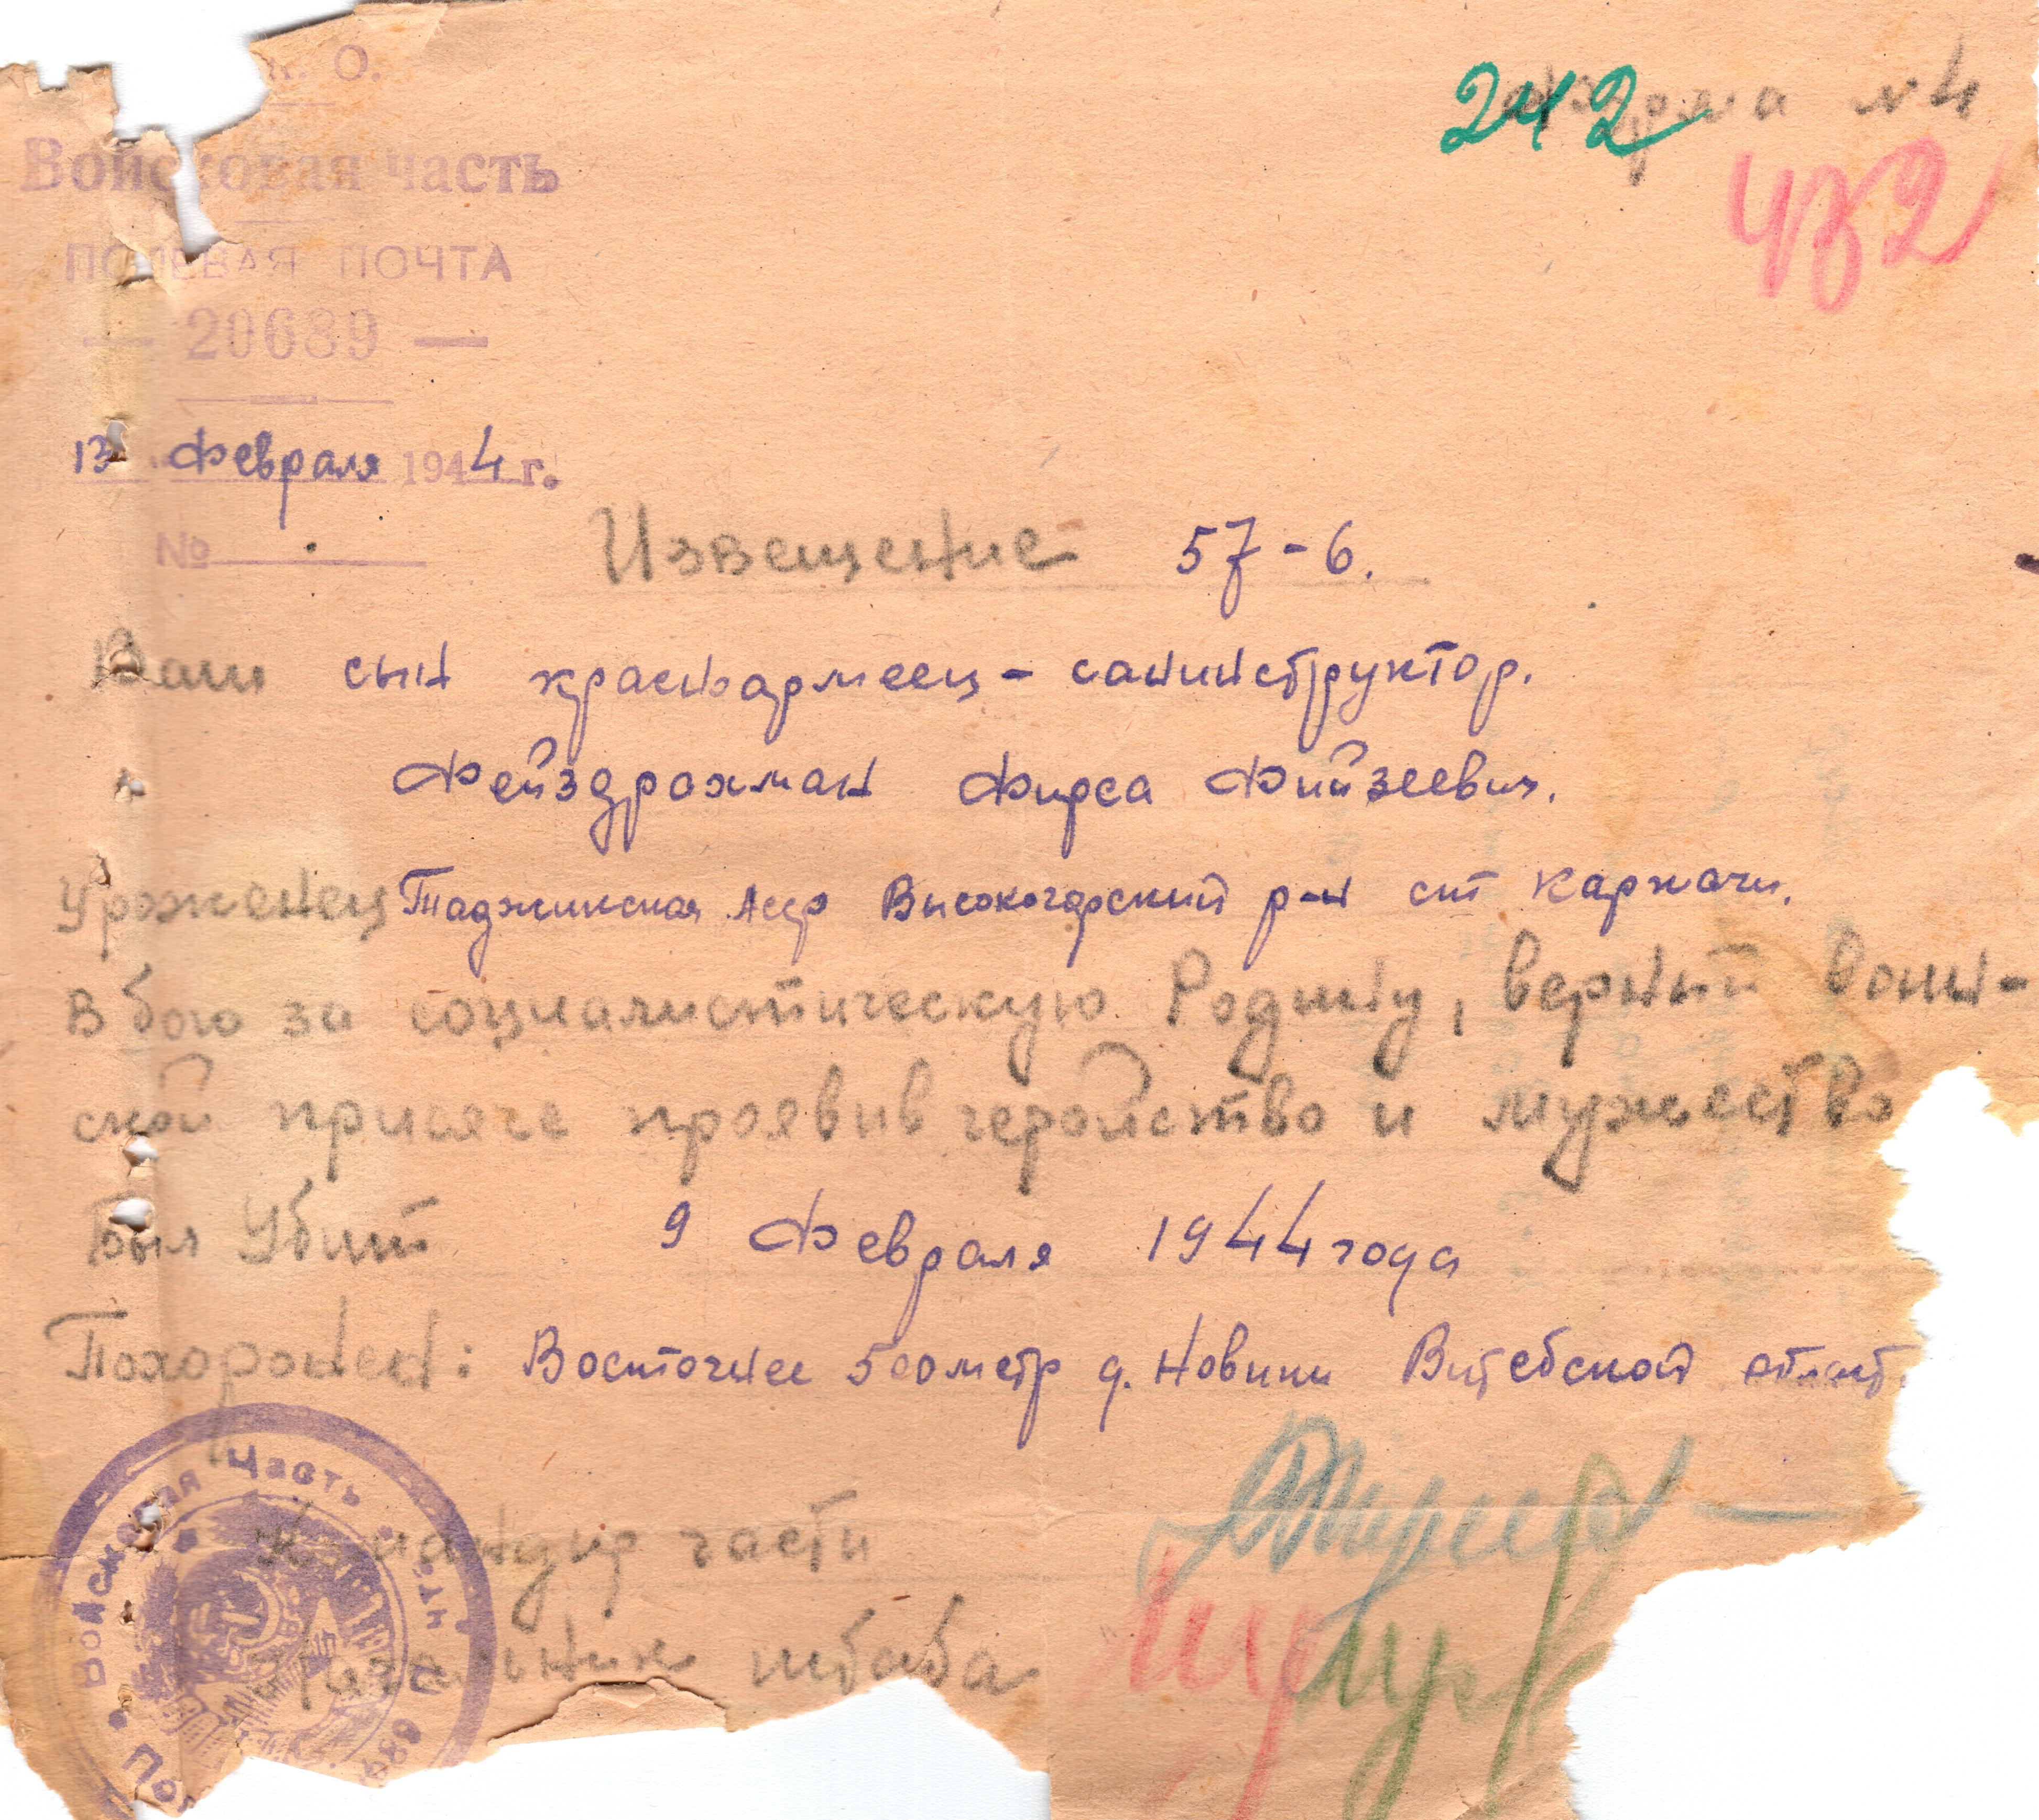 К. О.
Войсковая часть
ПОЛЕВАЯ ПОЧТА
— 20689 —
13 февраля 1944 г.
№
242
форма №4
432
Извещение 57-6.
Ваш сын красноармеец - санинструктор.
Фейздрахман Фирса Фийзеевич.
Уроженец Таджикская Асср Высокогорский р-н ст Каркачи.
В бою за социалистическую Родину, верный воин-
ской присяге проявив геройство и мужество
Был Убит 9 февраля 1944 года
Похоронен: Восточнее 500 метр д. Новики Витебской област
Командир части
Начальник штаба
Войсковая Часть